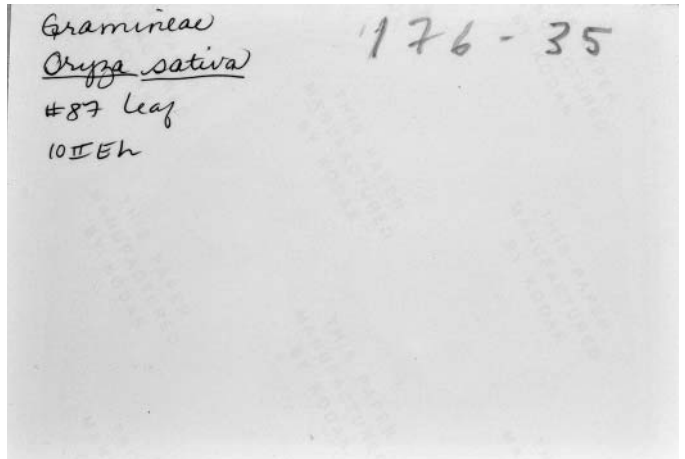 Gramineae
Oryza sativa
#87 leaf
10 II Eh
176-35
THIS PAPER
MANUFACTURED
BY KODAK